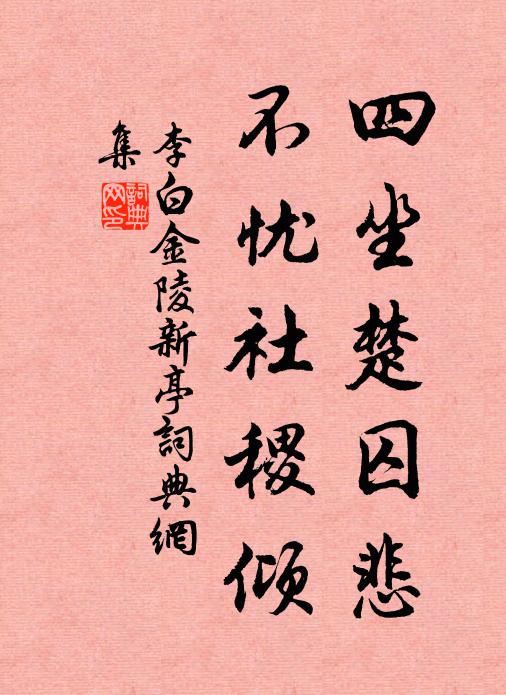 四坐楚囚悲
不忧社稷倾
李白金陵新亭詞典網
集
詞典网印